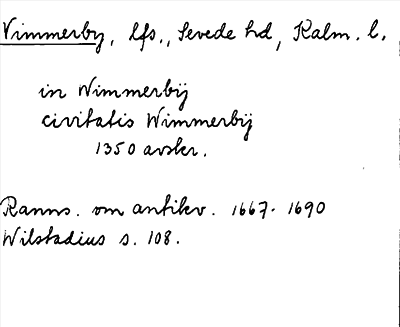 Vimmerby, lfs., Sevede hd, Kalm. l.
in Wimmerbÿ
civitatis Wimmerbÿ
1350 avskr.
Ranns. om antikv. 1667-1690
Wilstadius s. 108.